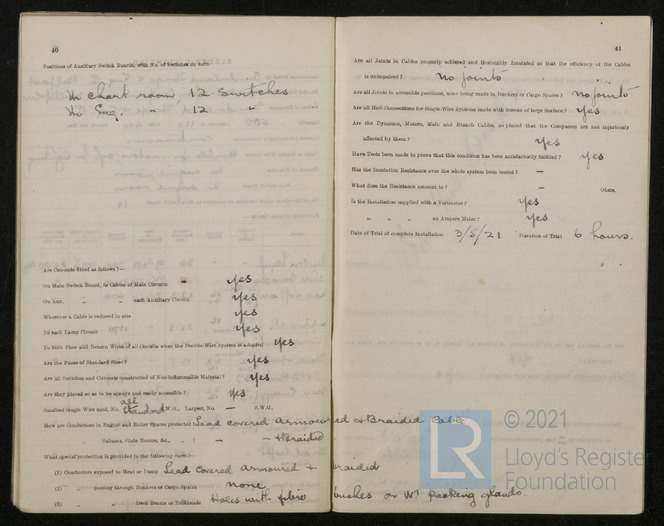 40
Positions of Auxiliary Switch Boards, with No. of Switches on each
In chart room 12 Switches
In Eng. " 12 "
Are Cut-outs fitted as follows?—
On Main Switch Board, to Cables of Main Circuits yes
On Aux. " " each Auxiliary Circuit yes
Wherever a Cable is reduced in size yes
To each Lamp Circuit yes
To both Flow and Return Wires of all Circuits when the Double-Wire System is adopted yes
Are the Fuses of Standard Sizes? yes
Are all Switches and Cut-outs constructed of Non-inflammable Material? yes
Are they placed so as to be always and easily accessible? yes
Smallest Single Wire used, No. all Standard S.W.G., Largest, No. — S.W.G.
How are Conductors in Engine and Boiler Spaces protected? Lead covered armoured & Braided Cable
" Saloons, State Rooms, &c., " ? " — & Braided
What special protection is provided in the following cases?—
(1) Conductors exposed to Heat or Damp Lead Covered armoured & Braided
(2) " passing through Bunkers or Cargo Spaces none
(3) " " Deck Beams or Bulkheads Holes with fibre bushes or Wt packing glands.
41
Are all Joints in Cables properly soldered and thoroughly insulated so that the efficiency of the Cables
is unimpaired? no joints
Are all Joints in accessible positions, none being made in Bunkers or Cargo Spaces? no joints
Are all Hull Connections for Single-Wire Systems made with Screws of large Surface? yes
Are the Dynamos, Motors, Main and Branch Cables, so placed that the Compasses are not injuriously
affected by them? yes
Have Tests been made to prove that this condition has been satisfactorily fulfilled? yes
Has the Insulation Resistance over the whole system been tested? —
What does the Resistance amount to? — Ohms.
Is the Installation supplied with a Voltmeter? yes
" " " an Ampere Meter? yes
Date of Trial of complete Installation 3/5/21 Duration of Trial 6 hours.
LR
© 2021
Lloyd's Register
Foundation